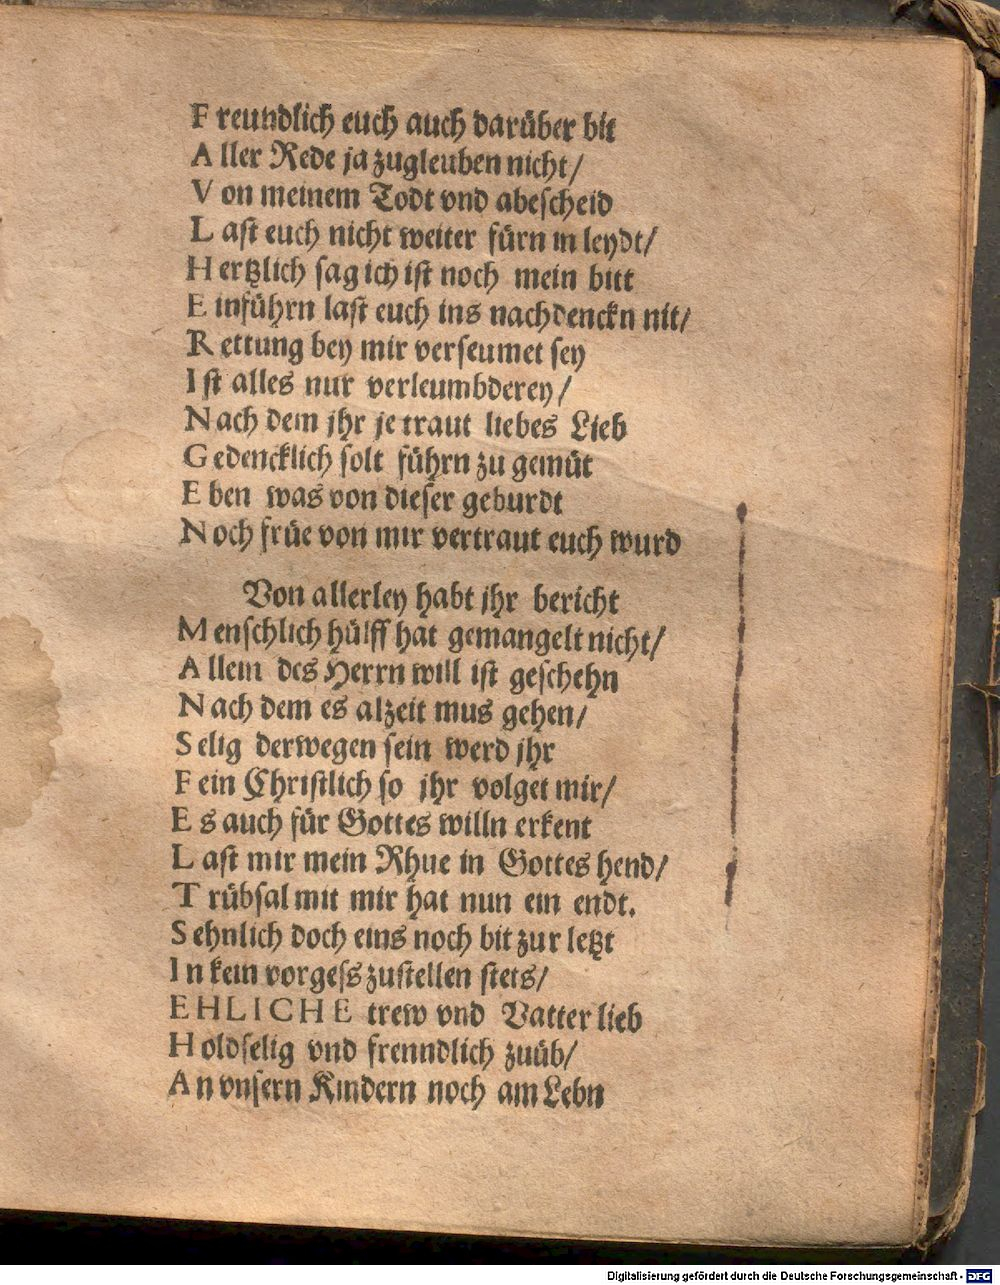 Freundlich euch auch darüber bit
Aller Rede ja zugleuben nicht/
Von meinem Todt vnd abescheid
Last euch nicht weiter fürn in leydt/
Hertzlich sag ich ist noch mein bitt
Einführn last euch ins nachdenckn nit/
Rettung bey mir verseumet sey
Ist alles nur verleumbderey/
Nach dem jhr je traut liebes Lieb
Gedencklich solt führn zu gemüt
Eben was von dieser geburdt
Noch früe von mir vertraut euch wurd
Von allerley habt jhr bericht
Menschlich hülff hat gemangelt nicht/
Allein des Herrn will ist geschehn
Nach dem es alzeit mus gehen/
Selig derwegen sein werd jhr
Fein Christlich so jhr volget mir/
Es auch für Gottes willn erkent
Last mir mein Rhue in Gottes hend/
Trübsal mit mir hat nun ein endt.
Sehnlich doch eins noch bit zur letzt
In kein vorgess zustellen stets/
EHLICHE trew vnd Vatter lieb
Holdselig vnd frenndlich zuüb/
An vnsern Kindern noch am Lebn
Digitalisierung gefördert durch die Deutsche Forschungsgemeinschaft - DFG